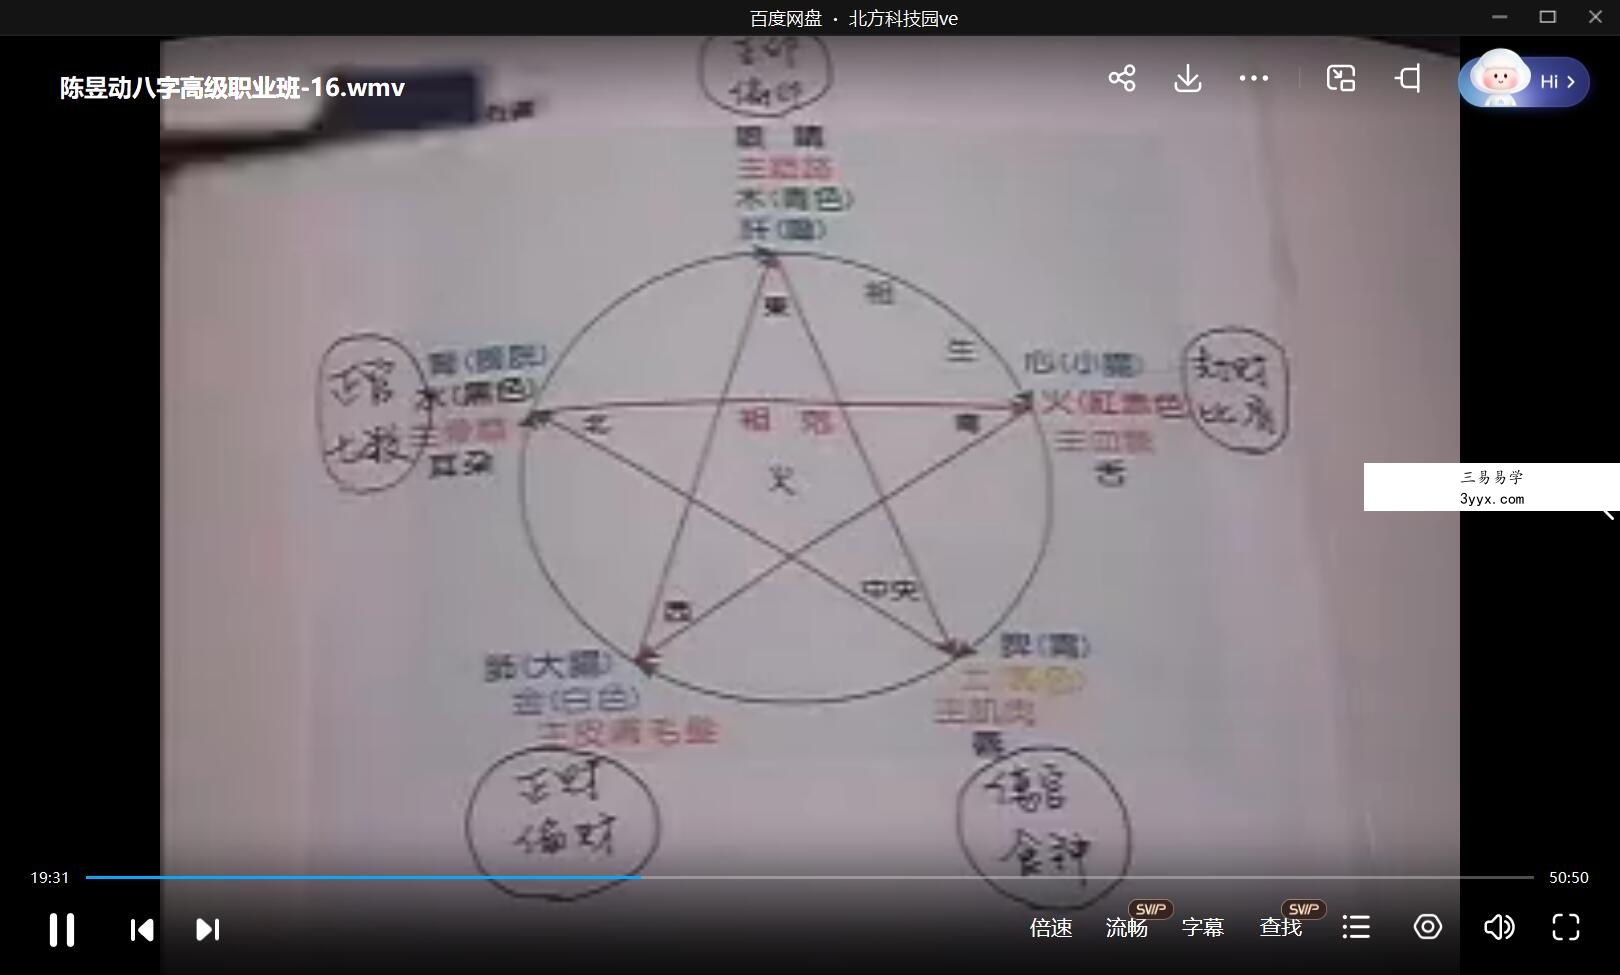 百度网盘 · 北方科技园ve
陈昱动八字高级职业班-16.wmv
Hi
正印
偏印
眼睛
主筋絡
木(青色)
肝(膽)
東
相
生
正官
七殺
腎(膀胱)
水(黑色)
主骨髓
耳朵
北
相 剋
南
心(小腸)
火(紅赤色)
主血脈
舌
劫财
比肩
火
三易易学
3yyx.com
西
中央
肺(大腸)
金(白色)
主皮膚毛髮
脾(胃)
土(黃色)
主肌肉
唇
正财
偏财
傷官
食神
19:31
50:50
倍速
流畅
SVIP
字幕
查找
SVIP